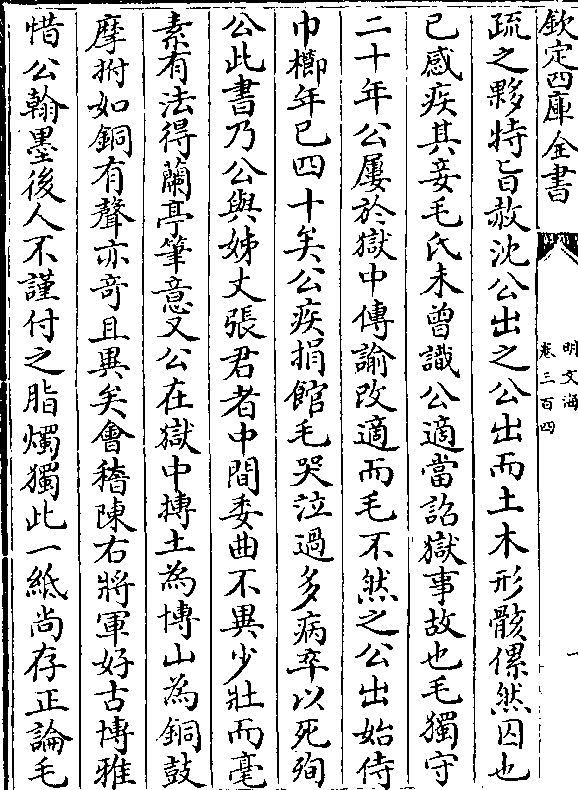 欽定四庫全書
明文海
卷三百四
一
疏之夥特旨赦沈公出之公出而土木形骸傫然囚也
已感疾其妾毛氏未曾識公適當詔獄事故也毛獨守
二十年公屢於獄中傳諭改適而毛不然之公出始侍
巾櫛年已四十矣公疾捐館毛哭泣過多病卒以死殉
公此書乃公與姊丈張君者中間委曲不異少壯而毫
素有法得蘭亭筆意又公在獄中摶土為博山為銅鼓
摩拊如銅有聲亦竒且異矣會稽陳右將軍好古博雅
惜公翰墨後人不謹付之脂燭獨此一紙尚存正論毛